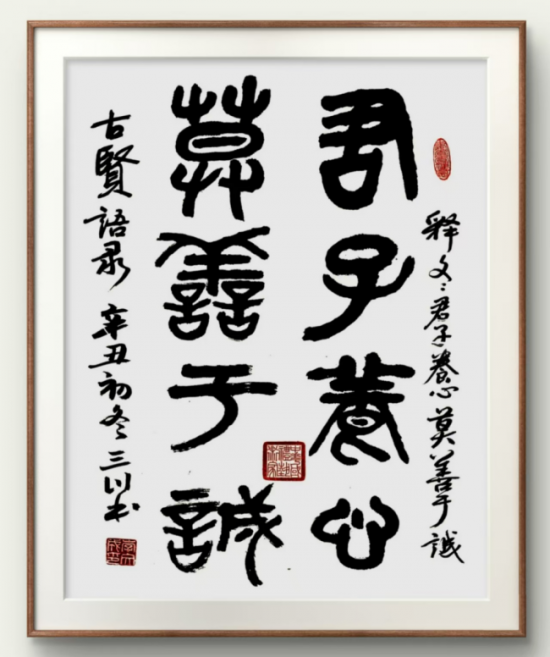 释文：君子养心莫善于誠
君子養心
莫善于誠
古賢語录 辛丑初冬 三川书